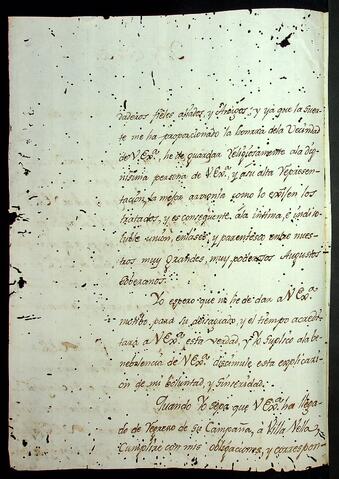 daderos fieles, aliados, y Amigos; y ya que la suer-
te me ha proporcionado la honrra dela Vecindad
de V Exª, he de guardar religiosamente ala dig-
nisima persona de V Exª, y asu alta represen-
tacion, la mejor armonia como lo exijen los
tratados, y es consequente ala intima, é indiso-
luble union, enlases, y parentesco entre nues-
tros muy grandes, muy poderosos Augustos
soberanos.
Yo espero que no he de dar a V Exª
motibo para su desagrado, y el tiempo acredi-
tará a V Exª esta verdad, y lo suplico ala be-
nebolencia de V Exª disimule esta explicaci-
on de mi voluntad, y sinceridad.
Quando Yo sepa que V Exª ha llega-
do de regreso de su Campaña, a Villa Vella
Cumpliré con mis obligaciones, y correspon-